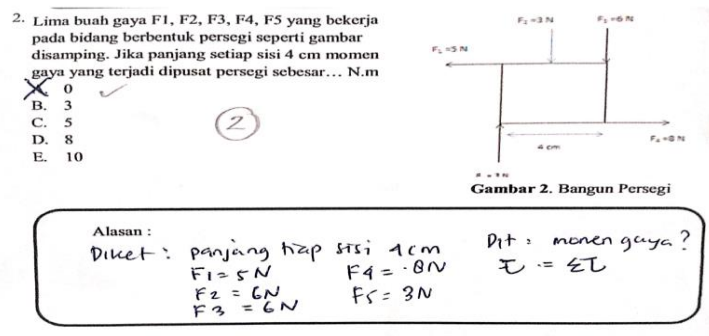 2. Lima buah gaya F1, F2, F3, F4, F5 yang bekerja
pada bidang berbentuk persegi seperti gambar
disamping. Jika panjang setiap sisi 4 cm momen
gaya yang terjadi dipusat persegi sebesar... N.m
0
B. 3
C. 5
D. 8
E. 10
2
F₂=3 N
F₃=6 N
F₁=5 N
4 cm
Gambar 2. Bangun Persegi
Alasan :
Diket : panjang tiap sisi 4cm
F1 = 5 N
F2 = 6N
F3 = 6N
F4 = 8N
F5 = 3N
Dit : monen gaya?
τ = Στ